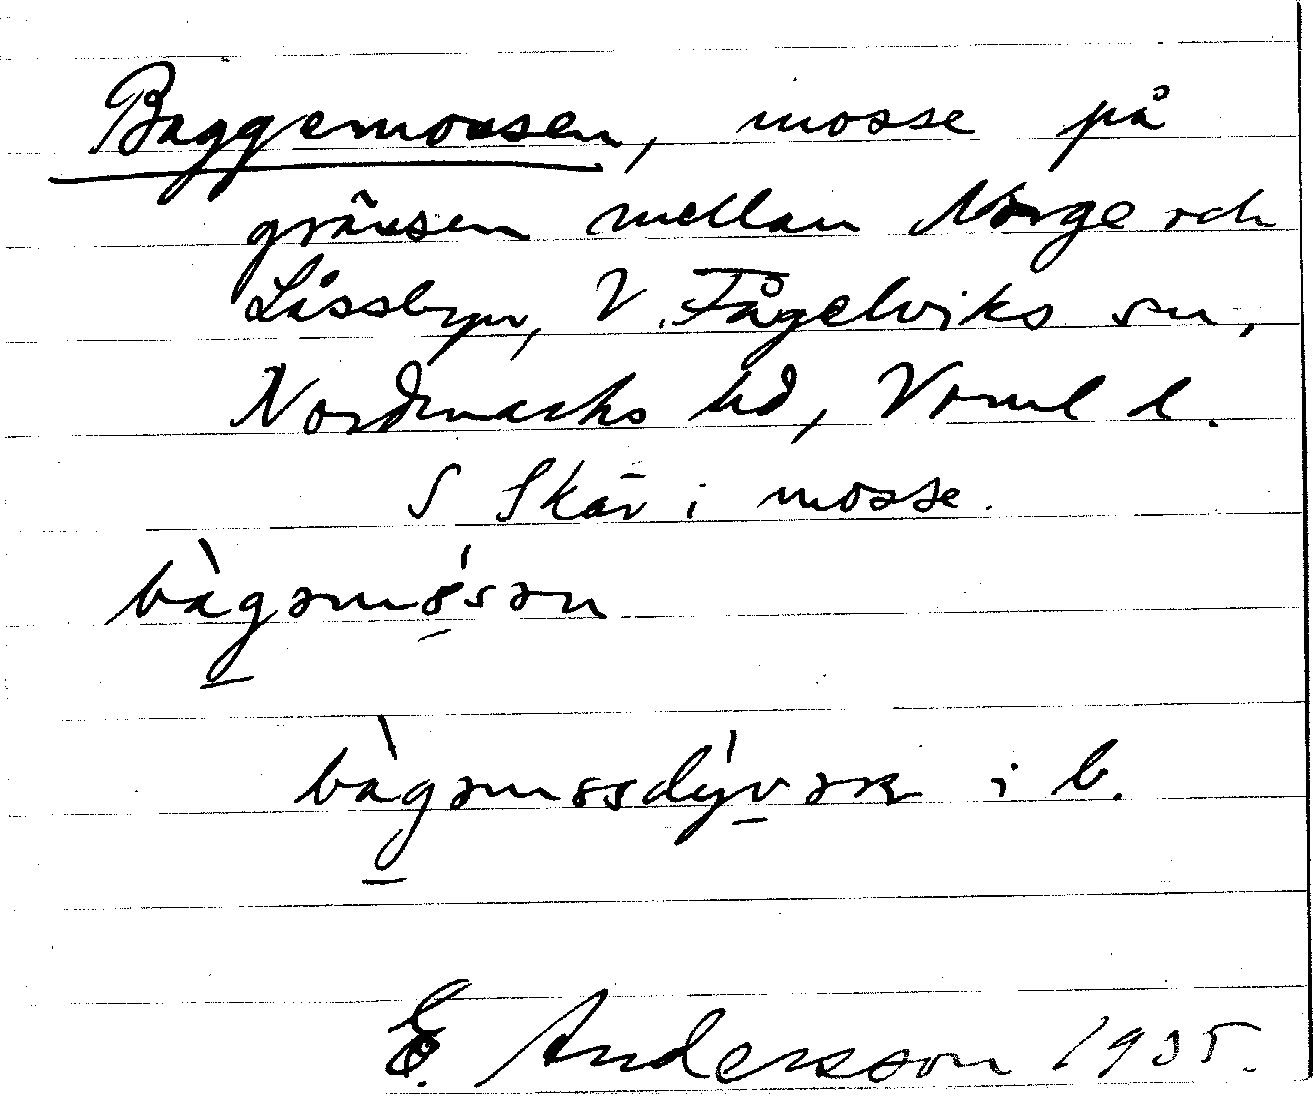 Baggemossen, mosse på
gränsen mellan Norge och
Låssbyn, V. Fågelviks sn,
Nordmarks hd, Vrml l.
S Skär i mosse.
bàgəmósən
bàgəmosdývər i b.
E. Andersson 1935.